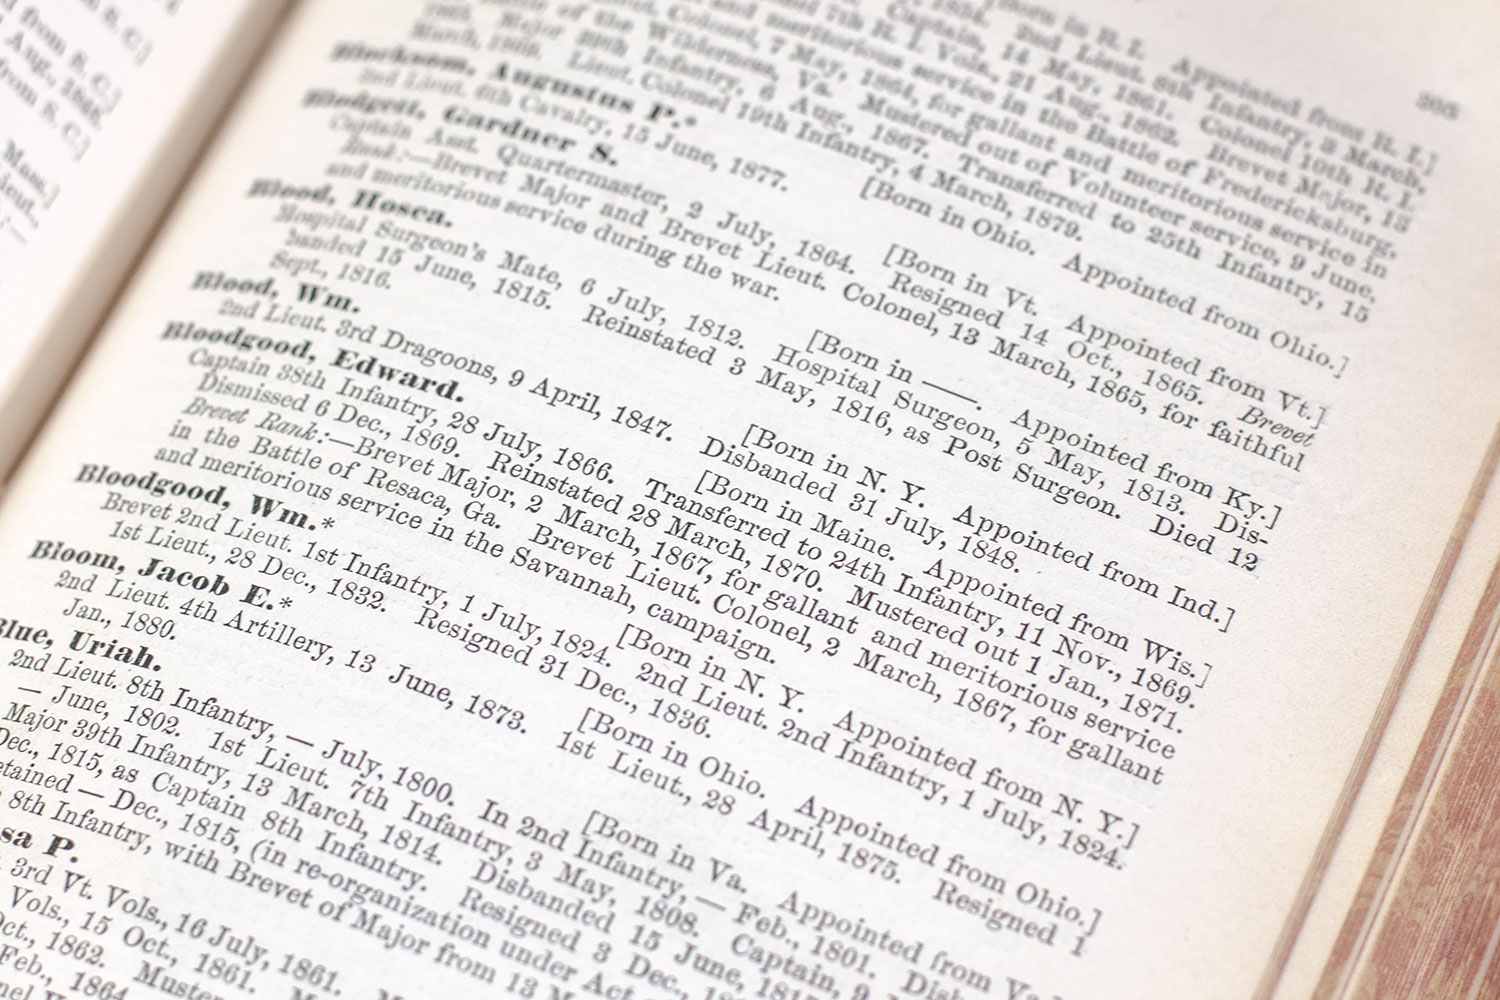 from S. C.]
Aug., 1846.
from S. C.]
Mass.]
305
[Born in R. I. Appointed from R. I.]
2nd Lieut. 8th Infantry, 3 March,
Captain, 14 May, 1861. Colonel 10th R. I.
7th R. I. Vols., 21 Aug., 1862. Brevet Major, 13
and meritorious service in the Battle of Fredericksburg,
Colonel, 7 May, 1864, for gallant and meritorious service in
of the Wilderness, Va. Mustered out of Volunteer service, 9 June,
Major 39th Infantry, 6 Aug., 1867. Transferred to 25th Infantry, 15
March, 1869. Lieut. Colonel 19th Infantry, 4 March, 1879.
Blocksom, Augustus P.* [Born in Ohio. Appointed from Ohio.]
2nd Lieut. 6th Cavalry, 15 June, 1877.
Blodgett, Gardner S. [Born in Vt. Appointed from Vt.]
Captain Asst. Quartermaster, 2 July, 1864. Resigned 14 Oct., 1865. Brevet
Rank:—Brevet Major and Brevet Lieut. Colonel, 13 March, 1865, for faithful
and meritorious service during the war.
Blood, Hosea. [Born in ——. Appointed from Ky.]
Hospital Surgeon's Mate, 6 July, 1812. Hospital Surgeon, 5 May, 1813. Dis-
banded 15 June, 1815. Reinstated 3 May, 1816, as Post Surgeon. Died 12
Sept., 1816.
Blood, Wm. [Born in N. Y. Appointed from Ind.]
2nd Lieut. 3rd Dragoons, 9 April, 1847. Disbanded 31 July, 1848.
Bloodgood, Edward. [Born in Maine. Appointed from Wis.]
Captain 38th Infantry, 28 July, 1866. Transferred to 24th Infantry, 11 Nov., 1869.
Dismissed 6 Dec., 1869. Reinstated 28 March, 1870. Mustered out 1 Jan., 1871.
Brevet Rank:—Brevet Major, 2 March, 1867, for gallant and meritorious service
in the Battle of Resaca, Ga. Brevet Lieut. Colonel, 2 March, 1867, for gallant
and meritorious service in the Savannah, campaign.
Bloodgood, Wm.* [Born in N. Y. Appointed from N. Y.]
Brevet 2nd Lieut. 1st Infantry, 1 July, 1824. 2nd Lieut. 2nd Infantry, 1 July, 1824.
1st Lieut., 28 Dec., 1832. Resigned 31 Dec., 1836.
Bloom, Jacob E.* [Born in Ohio. Appointed from Ohio.]
2nd Lieut. 4th Artillery, 13 June, 1873. 1st Lieut., 28 April, 1875. Resigned 1
Jan., 1880.
Blue, Uriah. [Born in Va. Appointed from Va.]
2nd Lieut. 8th Infantry, — July, 1800. In 2nd Infantry, — Feb., 1801. Disb
— June, 1802. 1st Lieut. 7th Infantry, 3 May, 1808. Captain, 9
Major 39th Infantry, 13 March, 1814. Disbanded 15 June, 181
Dec., 1815, as Captain 8th Infantry. Resigned 3 Dec.,
etained — Dec., 1815, (in re-organization under Act
8th Infantry, with Brevet of Major from 13 M
sa P.
3rd Vt. Vols., 16 July, 1861.
Vols., 15 Oct., 1861. M
Oct., 1862. Muster
Feb., 1864
nel